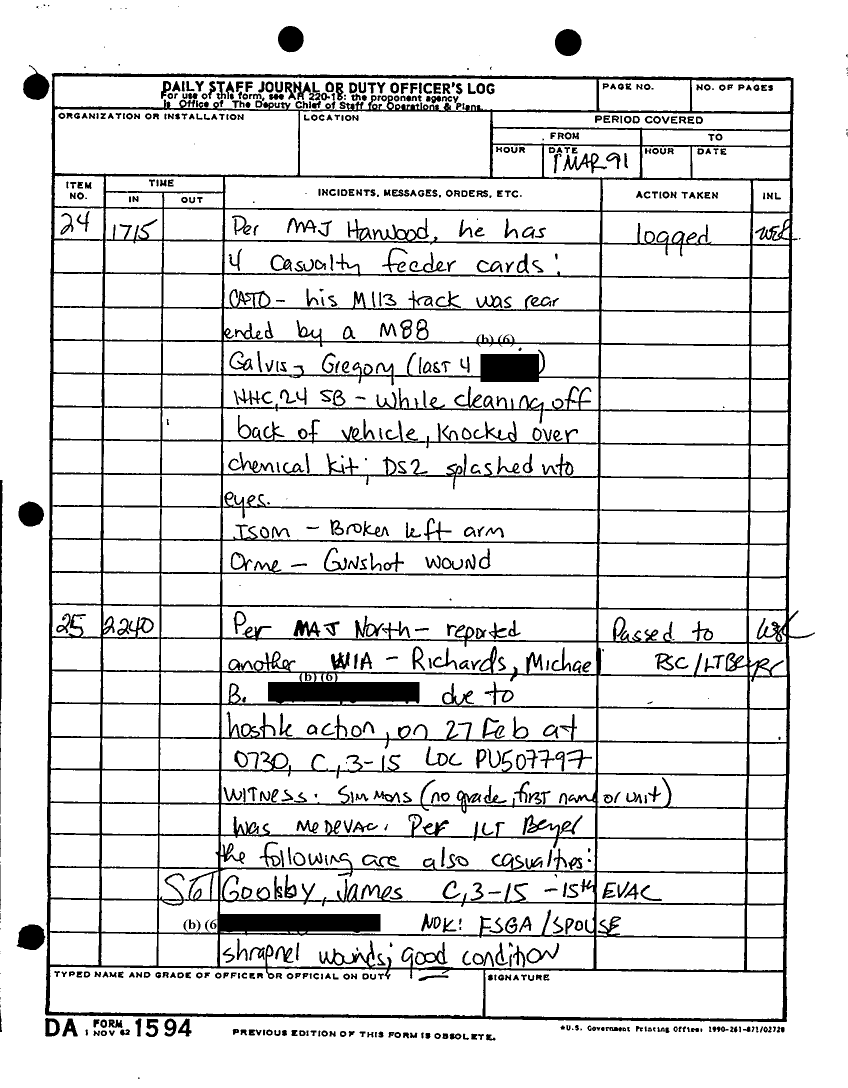 DAILY STAFF JOURNAL OR DUTY OFFICER'S LOG
For use of this form, see AR 220-15: the proponent agency
is Office of The Deputy Chief of Staff for Operations & Plans.
PAGE NO.
NO. OF PAGES
ORGANIZATION OR INSTALLATION
LOCATION
PERIOD COVERED
FROM
TO
HOUR
DATE
HOUR
DATE
1 MAR 91
ITEM NO.
TIME
IN
OUT
INCIDENTS, MESSAGES, ORDERS, ETC.
ACTION TAKEN
INL
24 1715 Per MAJ Harwood, he has logged
4 casualty feeder cards:
CASTO - his M113 track was rear
ended by a M88
(b)(6)
Galvis, Gregory (last 4 )
HHC, 24 SB - While cleaning off
back of vehicle, knocked over
chemical kit; DS2 splashed into
eyes.
Isom - Broken left arm
Orme - Gunshot wound
25 2240 Per MAJ North - reported Passed to
another WIA - Richards, Michael PSC/LT
(b)(6)
B. due to
hostile action, on 27 Feb at
0730, C, 3-15 LOC PU507797
WITNESS: SIMMONS (no grade, first name or unit)
was MEDEVAC. Per 1LT Beyer
the following are also casualties:
SGT Goolsby, James C, 3-15 - 15th EVAC
(b)(6 NOK: FSGA/SPOUSE
shrapnel wounds; good condition
TYPED NAME AND GRADE OF OFFICER OR OFFICIAL ON DUTY
SIGNATURE
DA FORM 1 NOV 62 1594
PREVIOUS EDITION OF THIS FORM IS OBSOLETE.
*U.S. Government Printing Office: 1990-261-871/02728